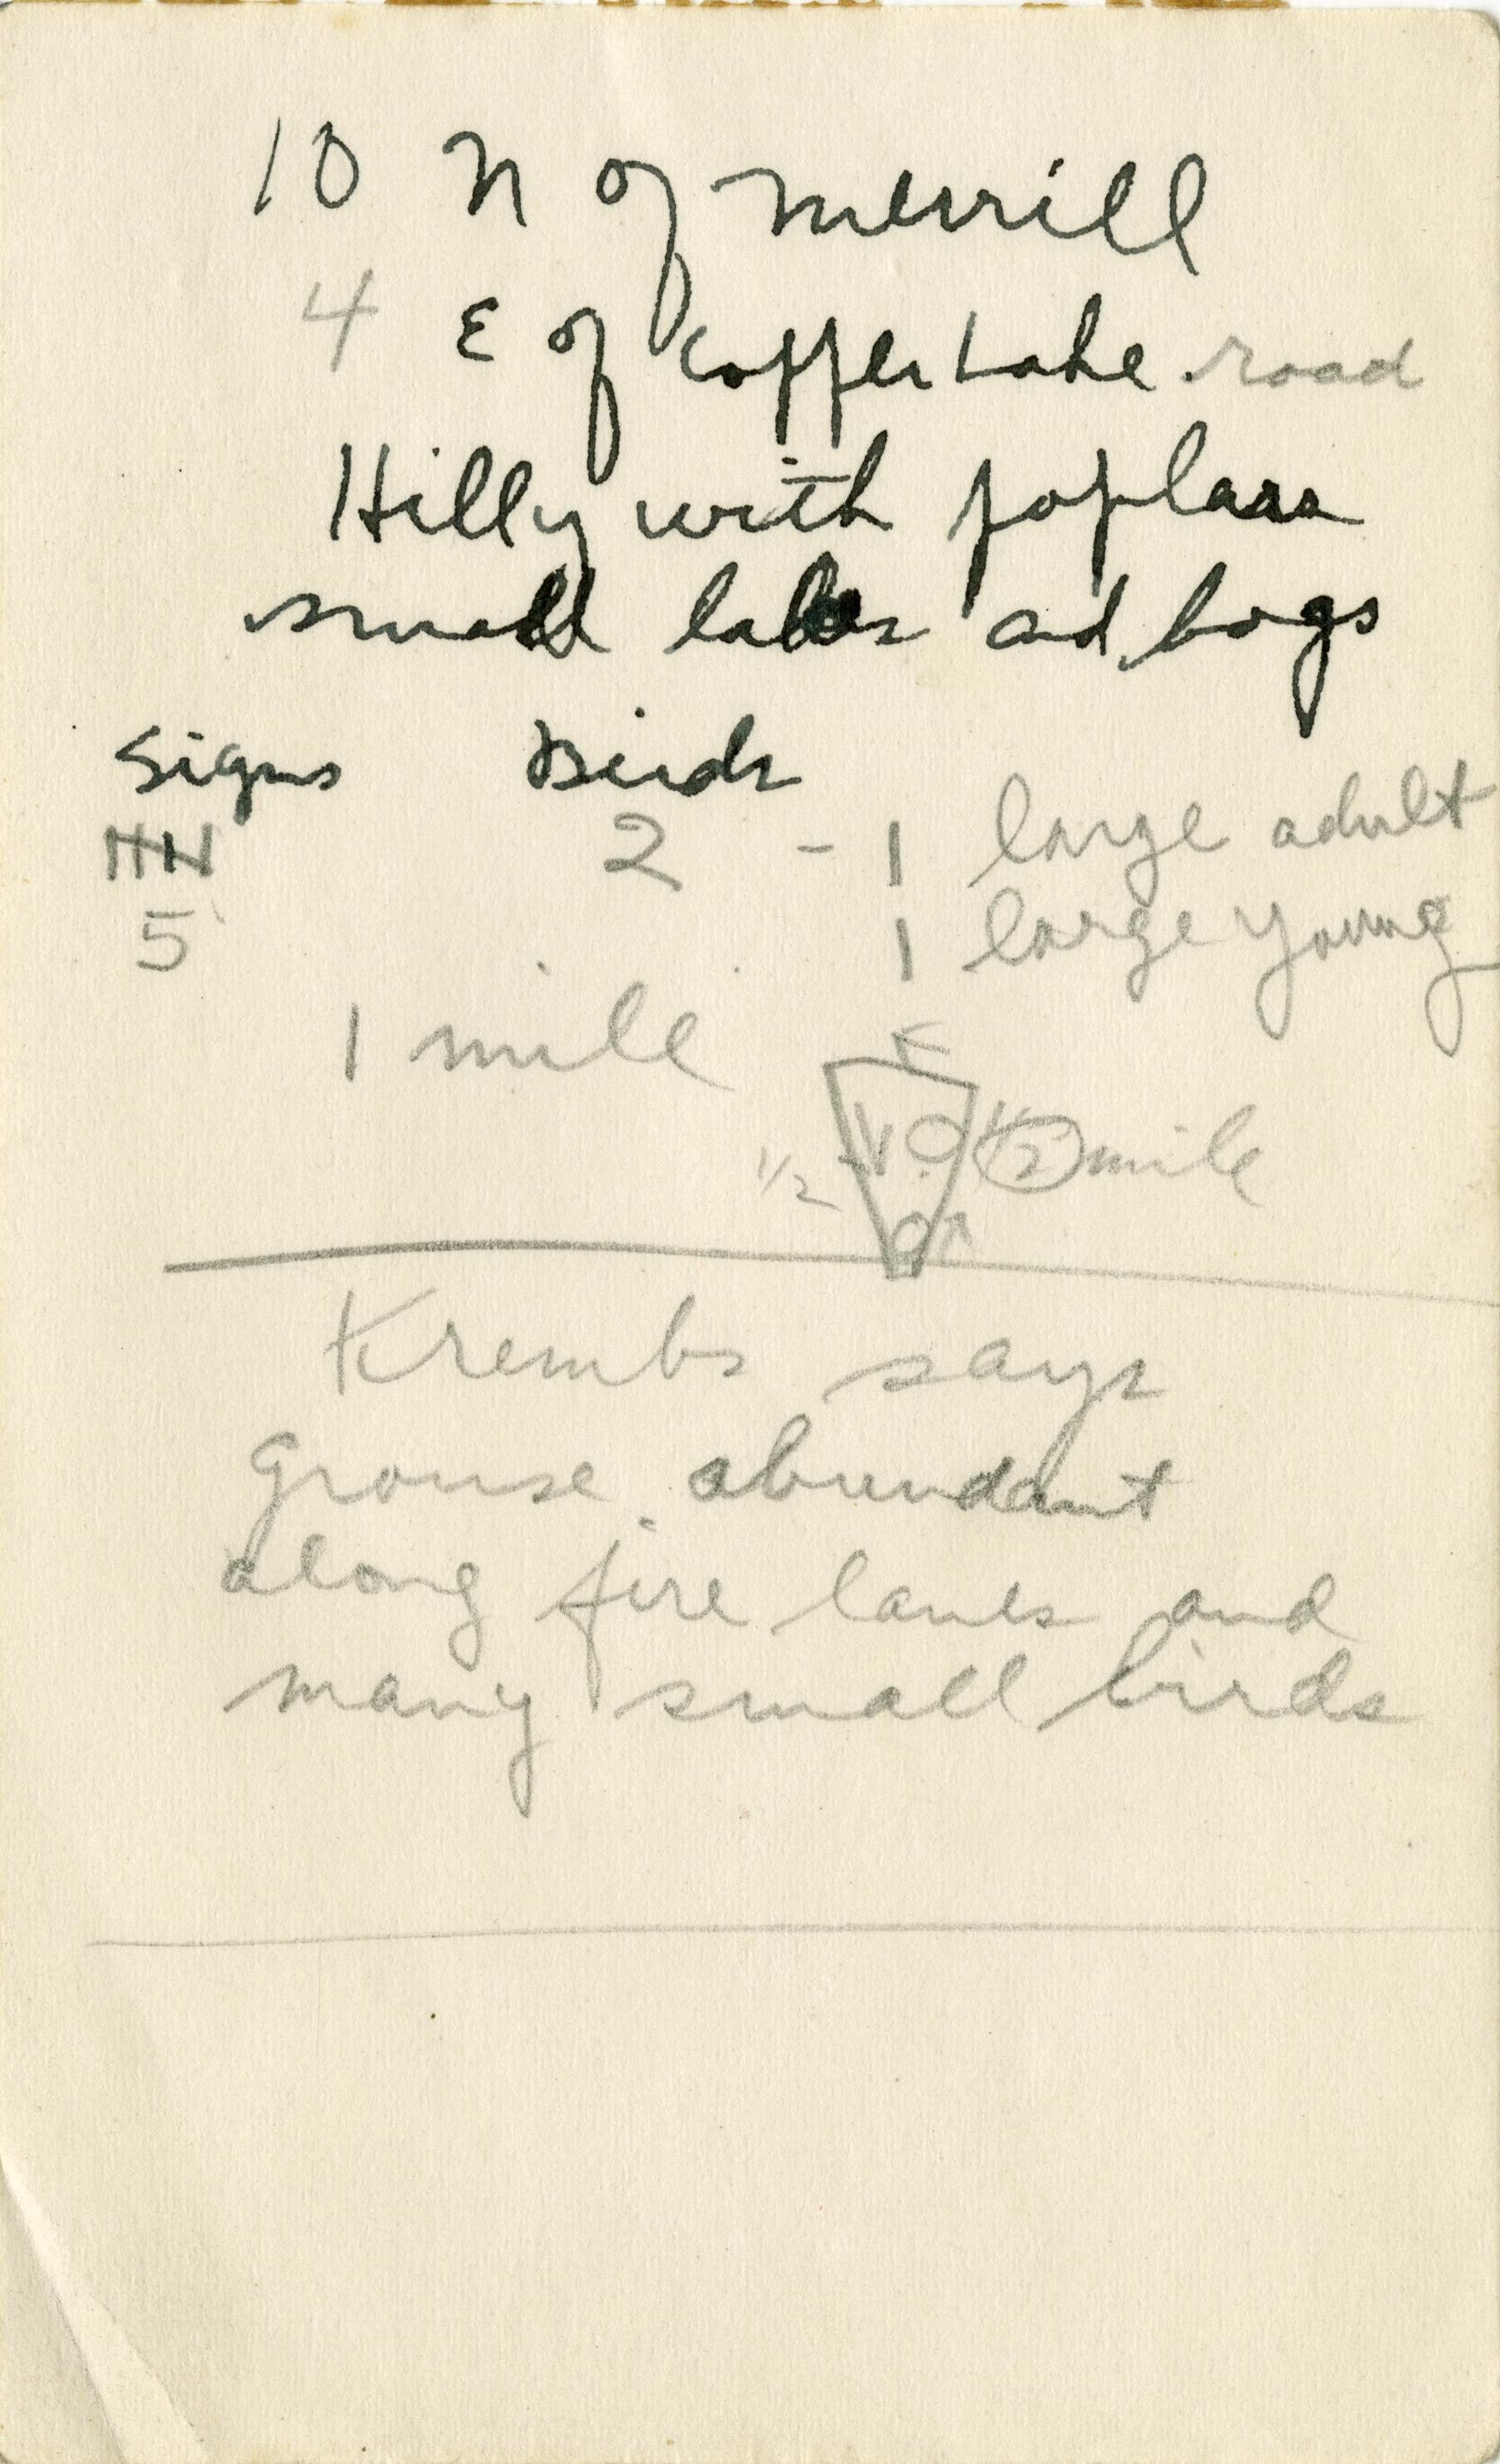 10 N of Merrill
4 E of Copper Lake road
Hilly with poplars
small lakes and bogs
Signs Birds
5 2 - 1 large adult
1 large young
1 mile
1/2 1/2 mile
Krembs says
Grouse abundant
along fire lanes and
many small birds